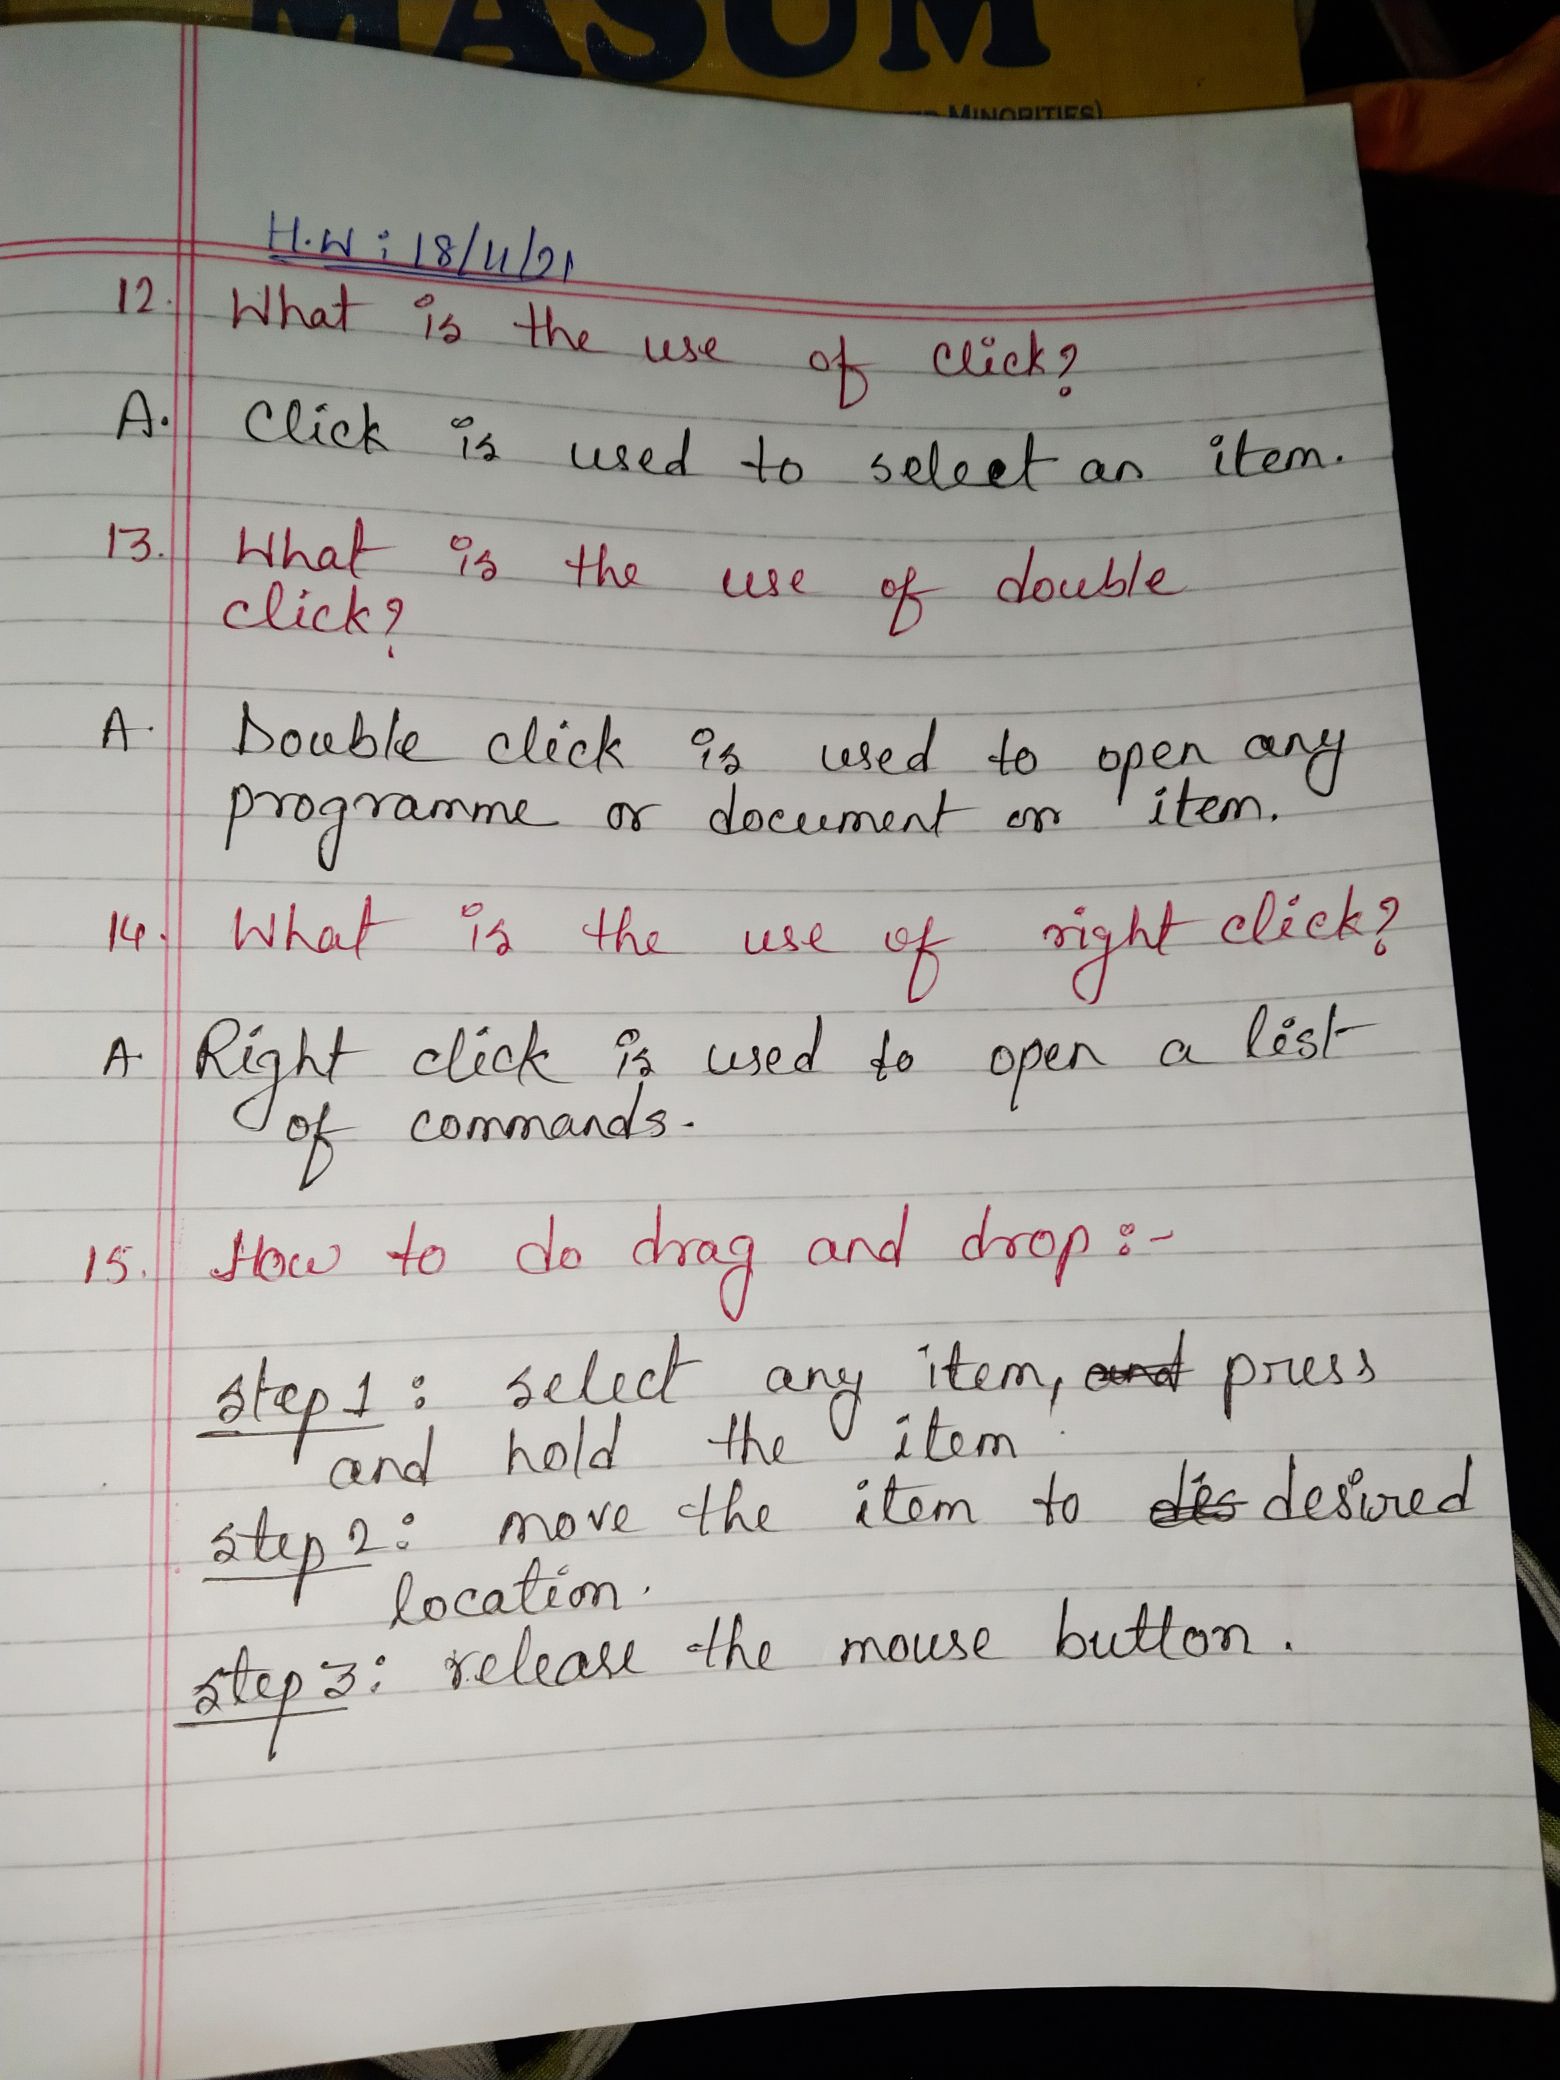 MASUM
MINORITIES)
H.W : 18/11/21
12. What is the use of click?
A. Click is used to select an item.
13. What is the use of double
click?
A. Double click is used to open any
programme or document or item.
14. What is the use of right click?
A. Right click is used to open a list
of commands.
15. How to do drag and drop :-
step 1 : select any item, and press
and hold the item.
step 2 : move the item to des desired
location.
step 3 : release the mouse button.